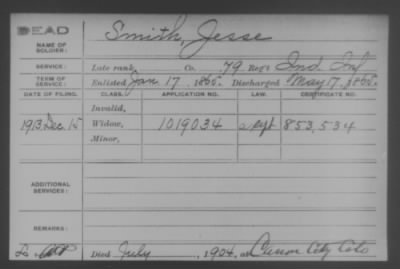 DEAD
Smith, Jesse
NAME OF SOLDIER:
SERVICE: Late rank, Co. 79 Reg't Ind Inf
TERM OF SERVICE: Enlisted Jan. 17, 1865. Discharged May 17, 1865.
DATE OF FILING. CLASS. APPLICATION NO. LAW. CERTIFICATE NO.
Invalid,
1913 Dec. 15 Widow, 1019034 853,534
Minor,
ADDITIONAL SERVICES:
REMARKS:
Died July, 1904, at City Colo